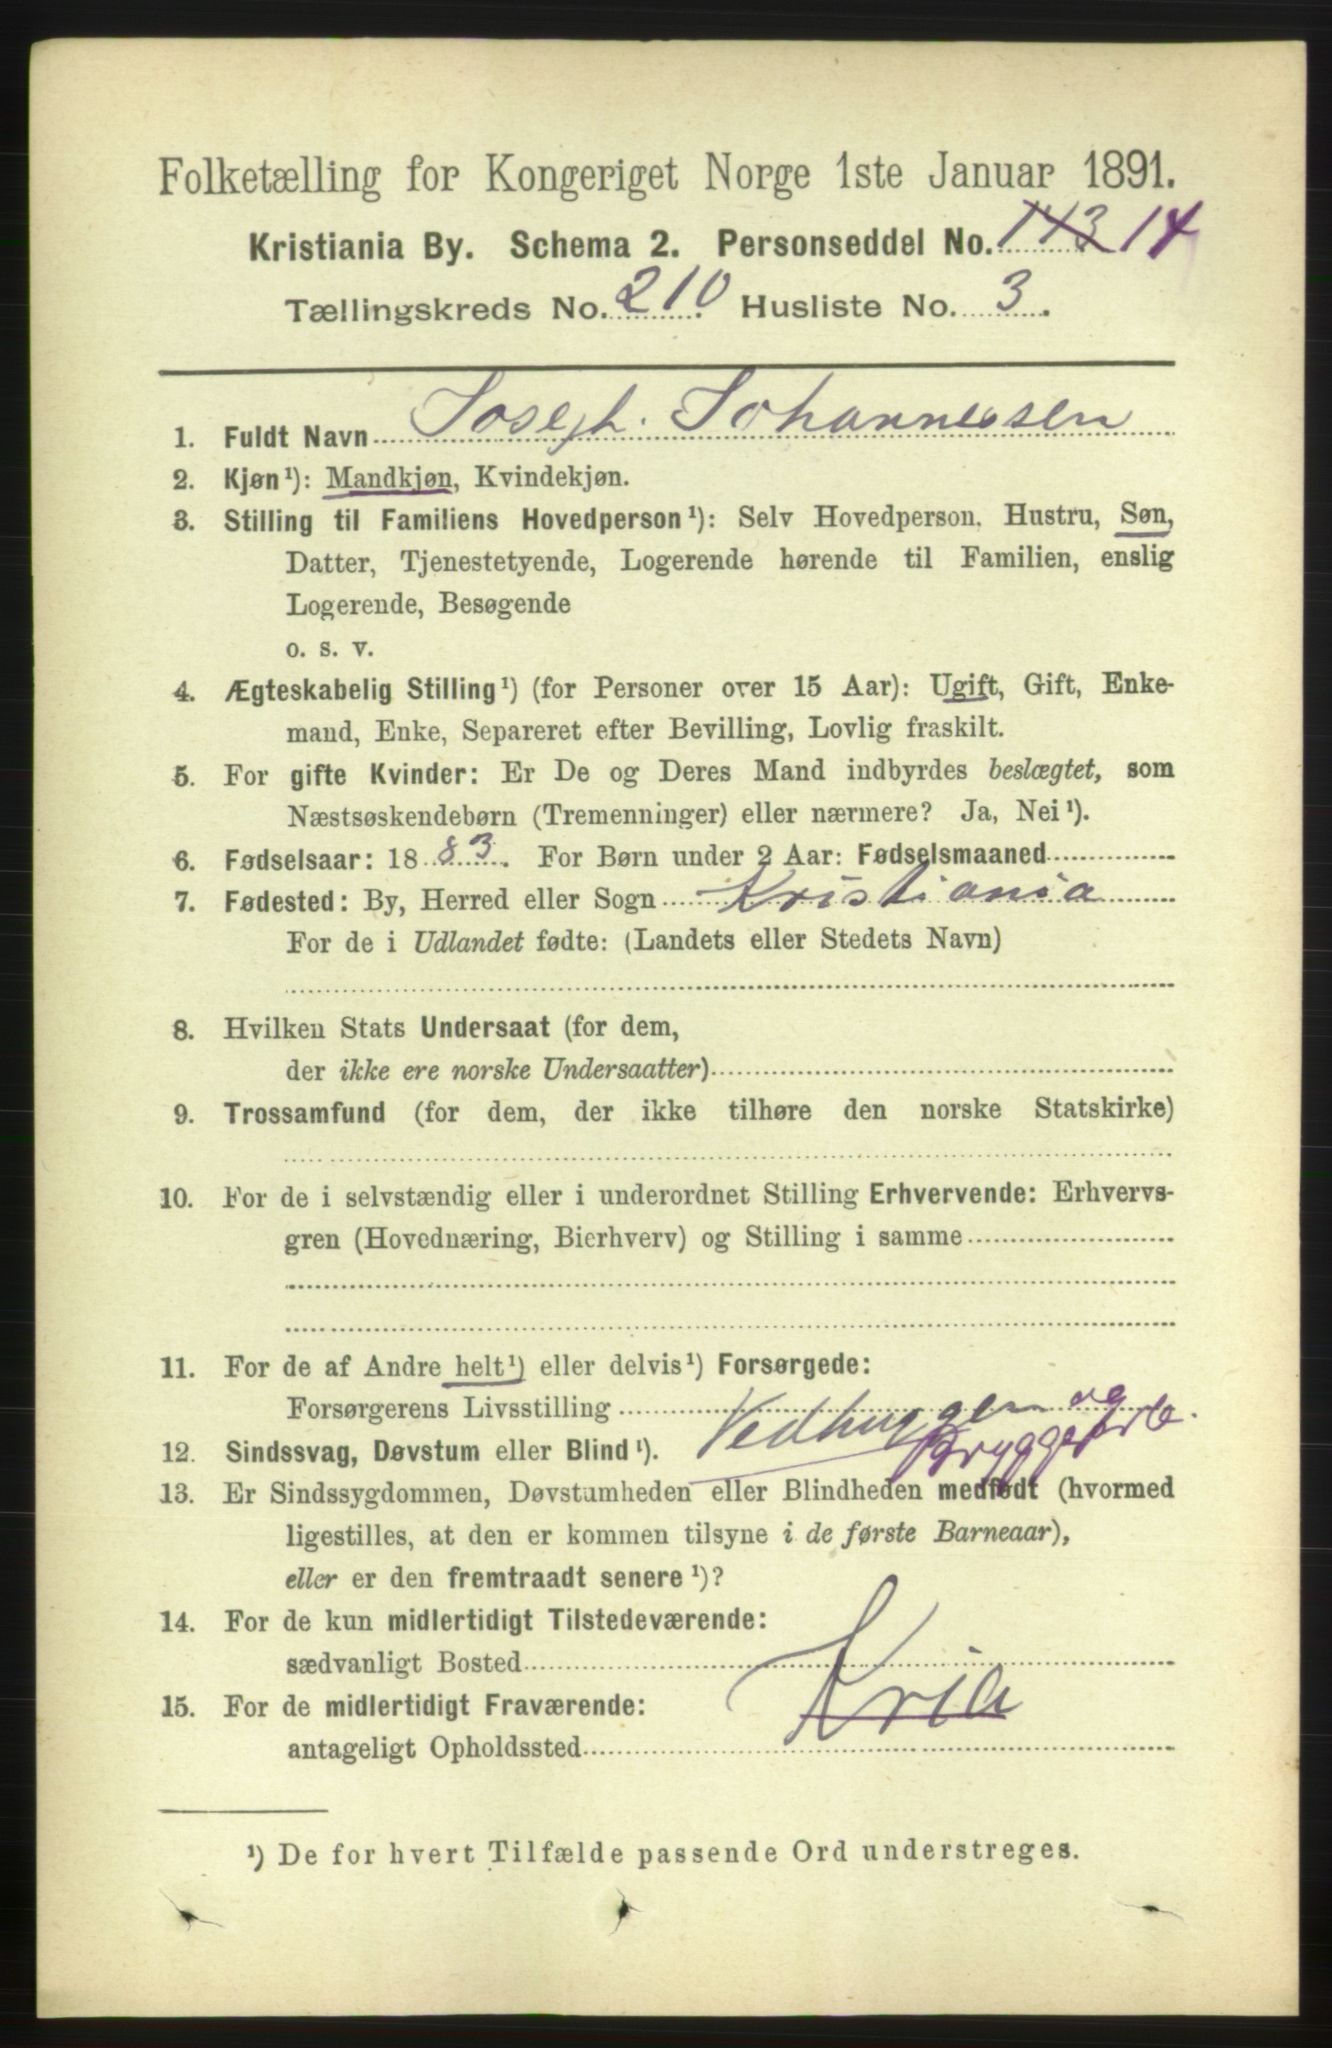 Folketælling for Kongeriget Norge 1ste Januar 1891.
Kristiania By. Schema 2. Personseddel No. 143 14
Tællingskreds No. 210 Husliste No. 3.
1. Fuldt Navn Joseph. Johannessen
2. Kjøn¹): Mandkjøn, Kvindekjøn.
3. Stilling til Familiens Hovedperson¹): Selv Hovedperson, Hustru, Søn,
Datter, Tjenestetyende, Logerende hørende til Familien, enslig
Logerende, Besøgende
o. s. v.
4. Ægteskabelig Stilling¹) (for Personer over 15 Aar): Ugift, Gift, Enke-
mand, Enke, Separeret efter Bevilling, Lovlig fraskilt.
5. For gifte Kvinder: Er De og Deres Mand indbyrdes beslægtet, som
Næstsøskendebørn (Tremenninger) eller nærmere? Ja, Nei¹).
6. Fødselsaar: 1883. For Børn under 2 Aar: Fødselsmaaned
7. Fødested: By, Herred eller Sogn Kristiania
For de i Udlandet fødte: (Landets eller Stedets Navn)
8. Hvilken Stats Undersaat (for dem,
der ikke ere norske Undersaatter)
9. Trossamfund (for dem, der ikke tilhøre den norske Statskirke)
10. For de i selvstændig eller i underordnet Stilling Erhvervende: Erhvervs-
gren (Hovednæring, Bierhverv) og Stilling i samme
11. For de af Andre helt¹) eller delvis¹) Forsørgede:
Forsørgerens Livsstilling Vedhugger og
Bryggearb.
12. Sindssvag, Døvstum eller Blind¹).
13. Er Sindssygdommen, Døvstumheden eller Blindheden medfødt (hvormed
ligestilles, at den er kommen tilsyne i de første Barneaar),
eller er den fremtraadt senere¹)?
14. For de kun midlertidigt Tilstedeværende:
sædvanligt Bosted
Kria
15. For de midlertidigt Fraværende:
antageligt Opholdssted
¹) De for hvert Tilfælde passende Ord understreges.